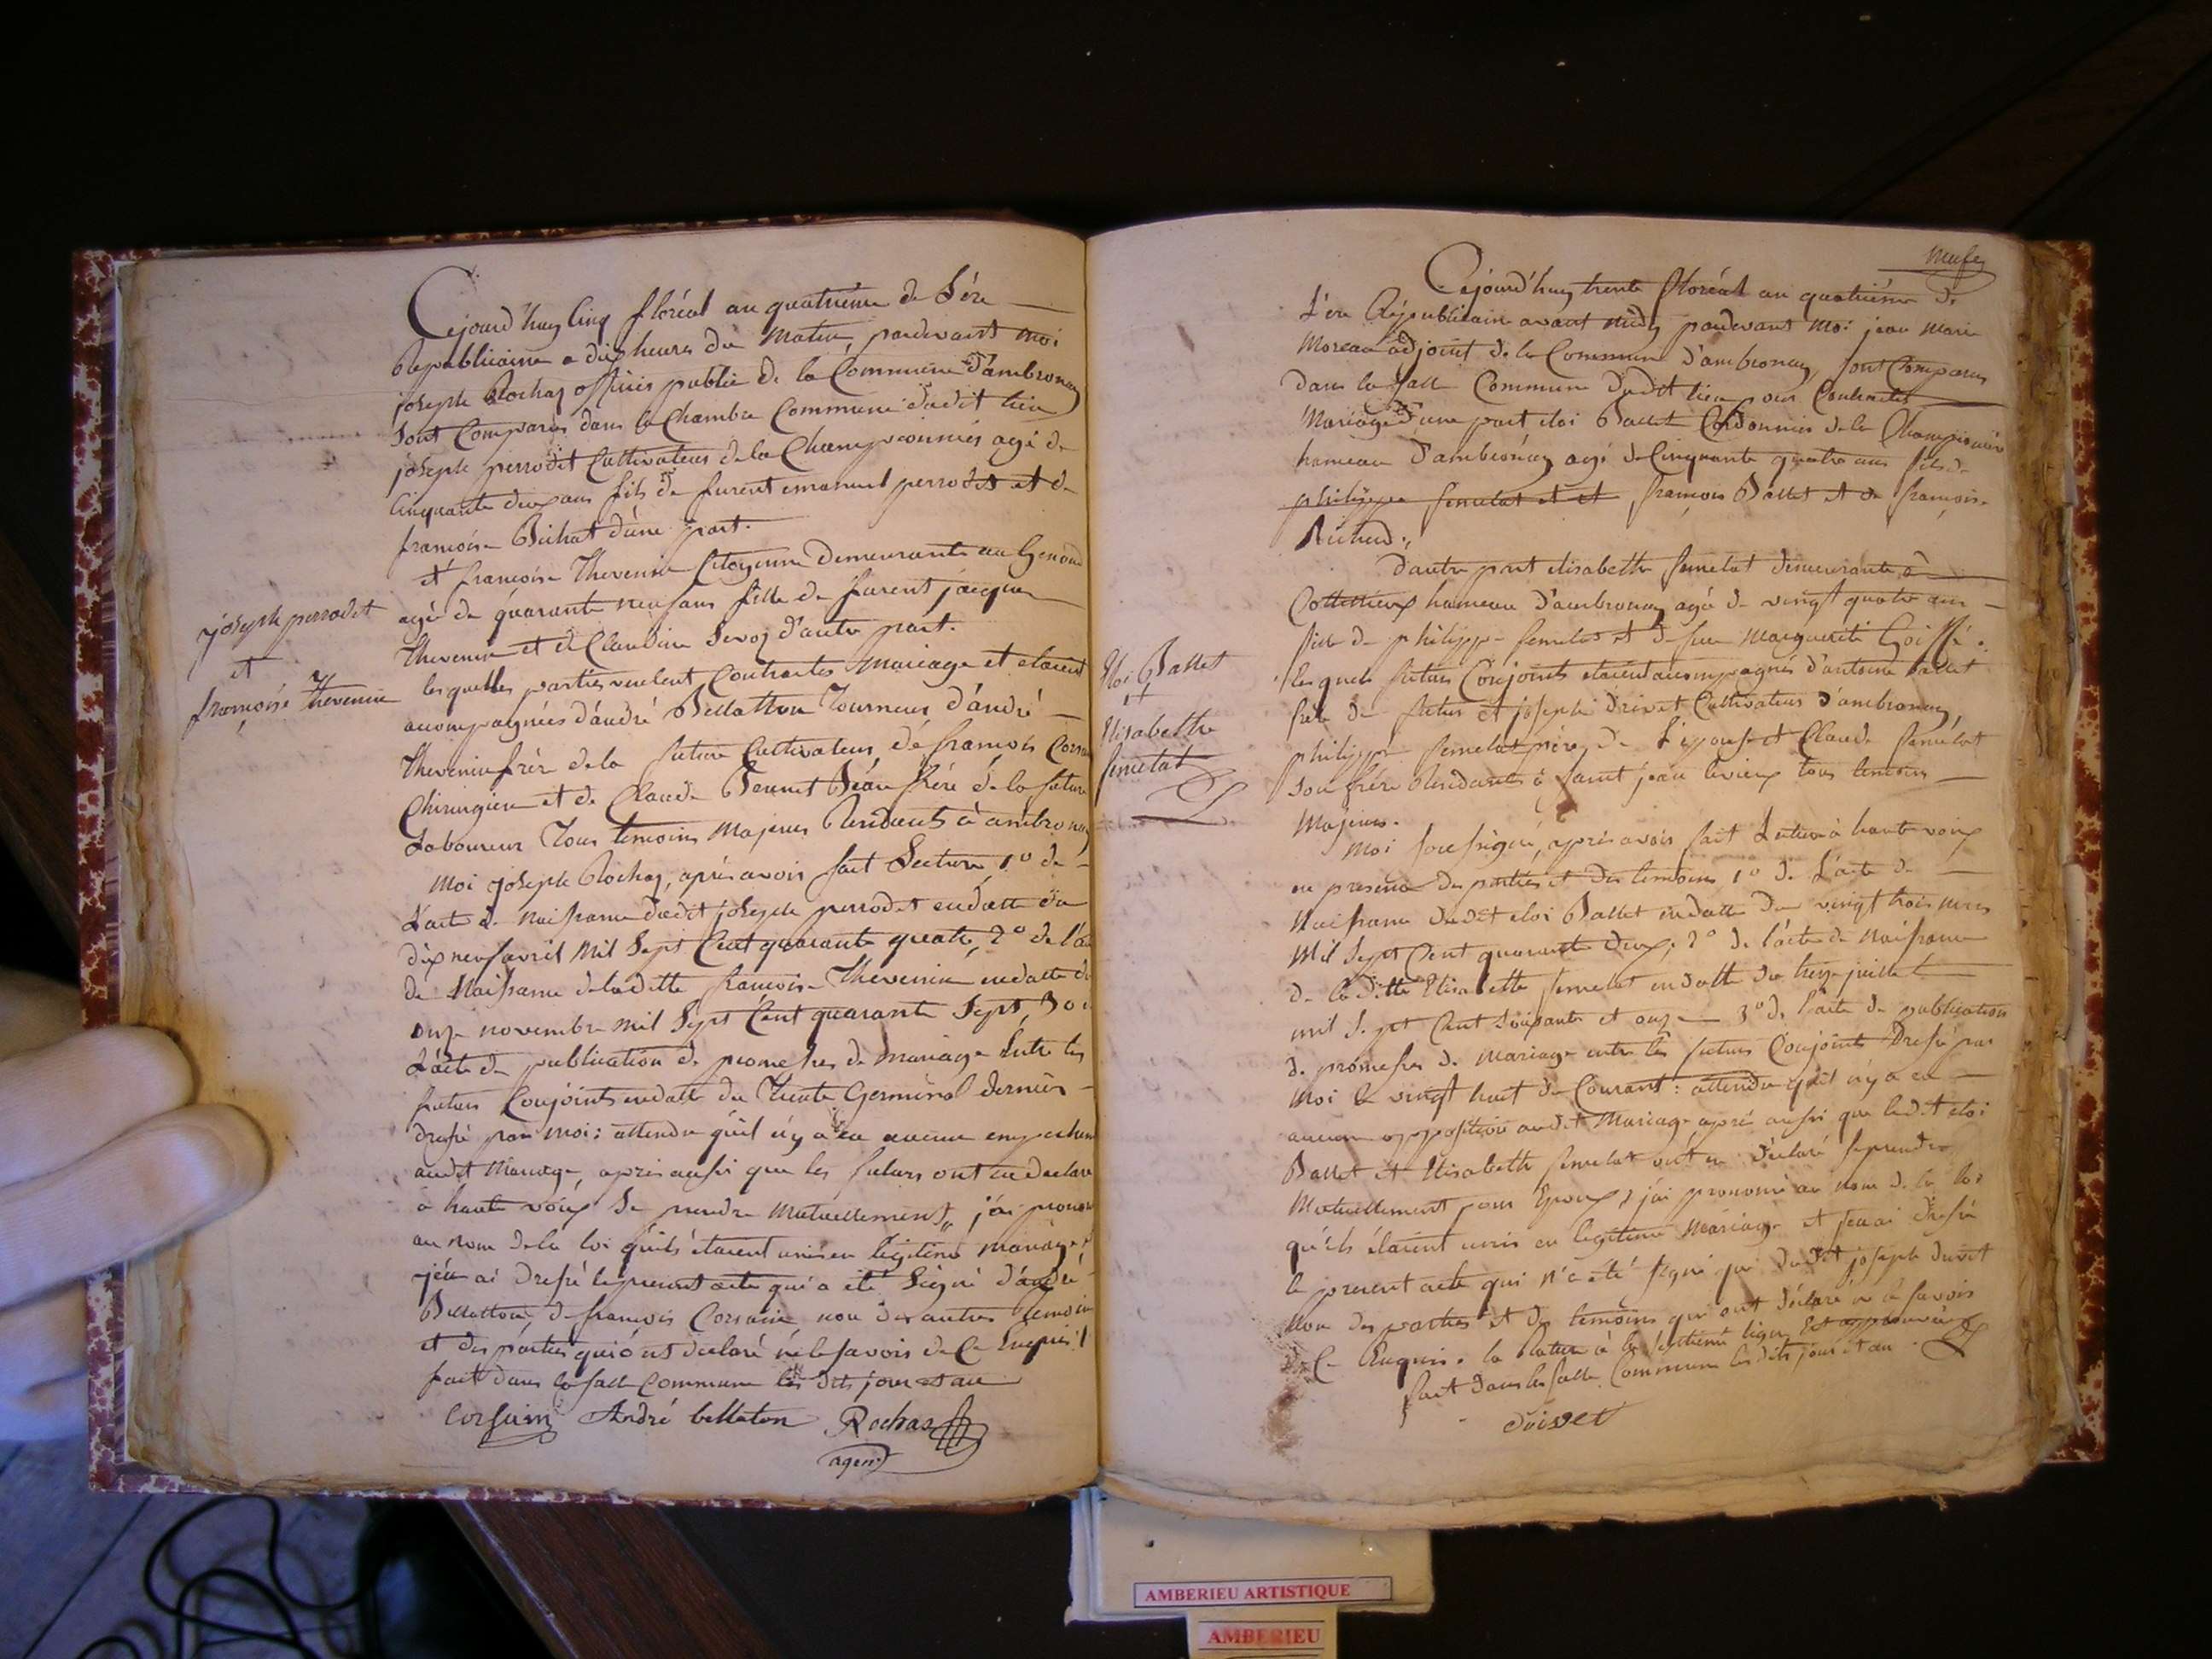 Cejourd'huy cinq floréal an quatrième de L'ére
Republicaine a dix heures du Matin, pardevant Moi
joseph Rochas officier public de la Commune D'ambronay
sont Comparus dans la Chambre Commune dudit lieu
joseph perrodet Cultivateur de la Championnière agé de
Cinquante deux ans fils de furent emanuel perrodet et de
françoise Bichat d'une part.
et françoise Thevenin Citoyenne Demeurante au Genoud
agée de quarante neuf ans fille de furent jacques
Thevenin et de Claudine Savoy d'autre part.
joseph perrodet
et
françoise Thevenin
lesquelles parties veulent Contracter Mariage et etoient
accompagnées d'andré Bellatton Tourneur d'andré
Thevenin frère de la future Cultivateur, de françois Corsain
Chirurgien et de Claude Bonnet Beau frére de la future
Laboureur Tous temoins Majeurs Residents à ambronay
Moi joseph Rochas, après avoir fait Lecture 1º de
L'acte de Naissance dudit joseph perrodet en datte du
dix neuf avril Mil Sept Cent quarante quatre, 2º de l'acte
de Naissance de laditte françoise Thevenin en datte du
onze novembre Mil Sept Cent quarante Sept, 3º de
L'acte de publication de promesses de Mariage Entre les
futurs Conjoints en datte du Trente Germinal dernier
dressé par Moi: attendu qu'il n'y a eu aucun empechement
audit Mariage, après aussi que les futurs ont eu declaré
à haute voix se prendre Mutuellement, j'ai prononcé
au nom de la loi qu'ils étoient unis en légitime Mariage et
j'en ai dressé le present acte qui a été Signé d'andré
Bellatton, de françois Corsain, non des autres temoins
et des parties qui ont declaré ne le savoir de Ce Enquis!
fait dans la salle Commune les dits jour et an
Corsain André bellaton Rochas
agent
neuf
Cejourd'huy trente floréal an quatriéme de
L'ére Républicaine avant midy pardevant Moi jean Marie
Moreau adjoint de la Commune D'ambronay, sont Comparus
dans la salle Commune dudit lieu pour Contracter
Mariage D'une part eloi Ballet Cordonnier de la Championière
hameau D'ambronay agé de Cinquante quatre ans fils de
philippe semelat et et françois Ballet et de françoise
D'autre part elisabeth semelat demeurante à
hameau D'ambronay agée de vingt quatre ans
fille de philippe semelat et de feue Marguerite Goiffé.
Eloi Ballet
et
Elisabethe
semelat
lesquels futurs Conjoints etoient accompagnés d'antoine Ballet
frère du futur et joseph drivet Cultivateurs d'ambronay,
philippe semelat père de L'epouse et Claude semelat
son frère Residents à saint jean levieux tous temoins
Majeurs.
Moi soussigné, après avoir fait Lecture à haute voix
en presence des parties et des temoins 1º de L'acte de
Naissance dudit eloi Ballet en datte du vingt trois mars
Mil Sept Cent quarante deux, 2º de l'acte de Naissance
de laditte Elisabette semelat en datte du treize juillet
mil Sept Cent soixante et onze 3º de l'acte de publication
de promesses de Mariage entre les futurs Conjoints Dressé par
Moi le vingt huit du Courant: attendu qu'il n'y a eu
aucune opposition audit Mariage après aussi que ledit eloi
Ballet et Elisabeth semelat ont eu déclaré se prendre
Mutuellement pour Epoux, j'ai prononcé au nom de la loi
qu'ils étaient unis en légitime Mariage et j'en ai dressé
le present acte qui n'a été signé que dudit joseph drivet
non des parties et des temoins qui ont déclaré ne le savoir
de Ce Enquis. la Rature à la septieme ligne Est approuvée
fait dans la salle Commune les dits jour et an.
drivet
AMBERIEU ARTISTIQUE
AMBERIEU